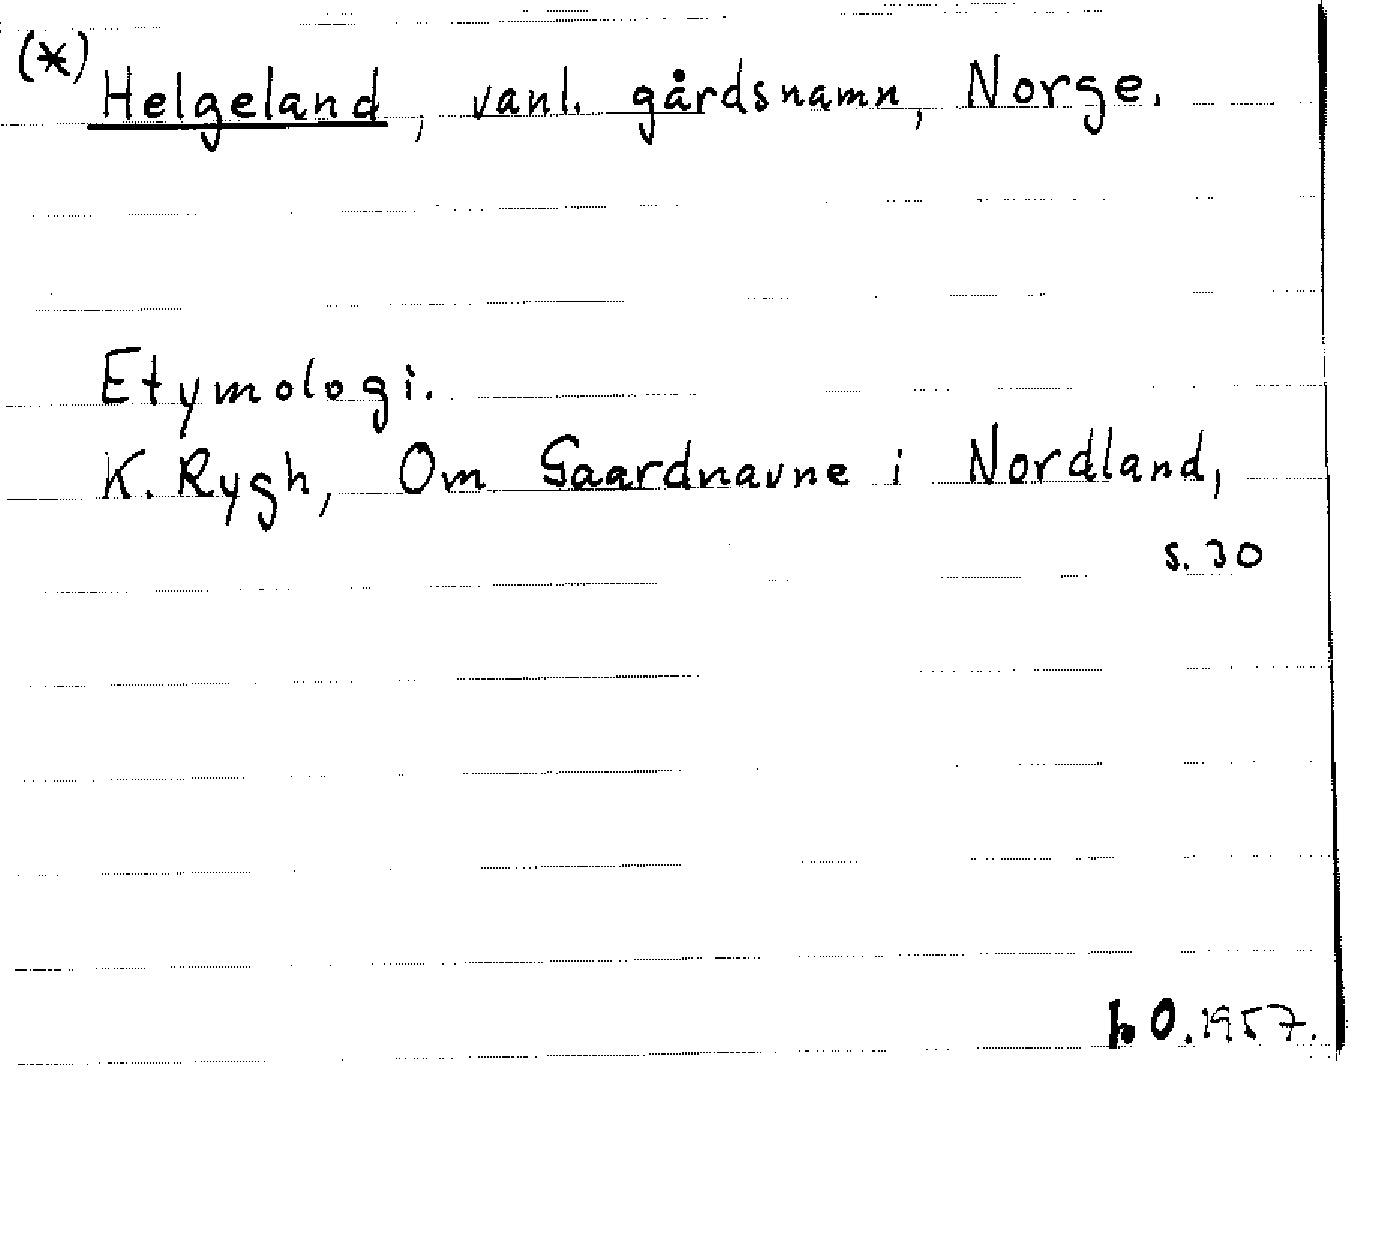 (*) Helgeland, vanl. gårdsnamn, Norge.
Etymologi.
K. Rygh, Om Gaardnavne i Nordland,
s. 30
1957.